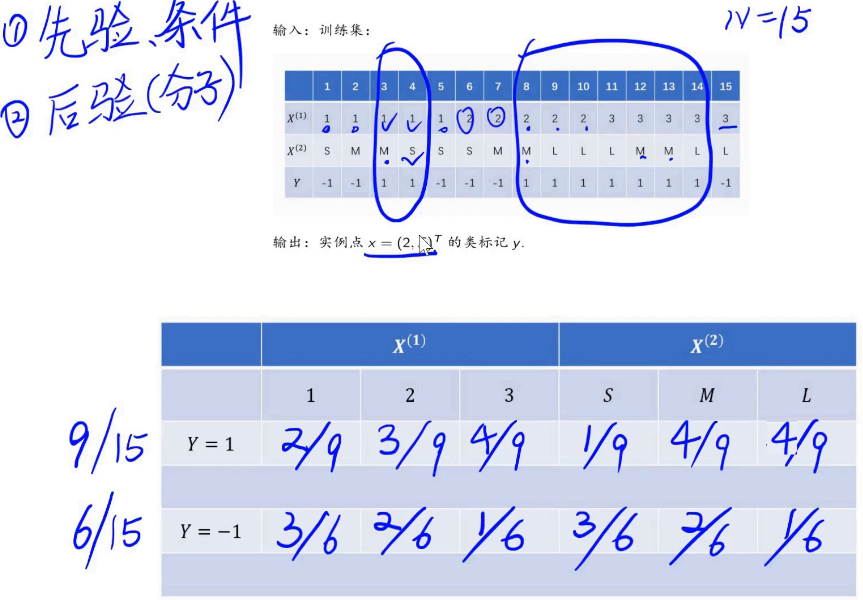 ① 先验、条件
② 后验(分子)
N=15
输入: 训练集:
1 2 3 4 5 6 7 8 9 10 11 12 13 14 15
X(1) 1 1 1 1 1 2 2 2 2 2 3 3 3 3 3
X(2) S M M S S S M M L L L M M L L
Y -1 -1 1 1 -1 -1 -1 1 1 1 1 1 1 1 -1
输出: 实例点 x = (2, )T 的类标记 y.
X(1) X(2)
1 2 3 S M L
9/15 Y = 1 2/9 3/9 4/9 1/9 4/9 4/9
6/15 Y = −1 3/6 2/6 1/6 3/6 2/6 1/6